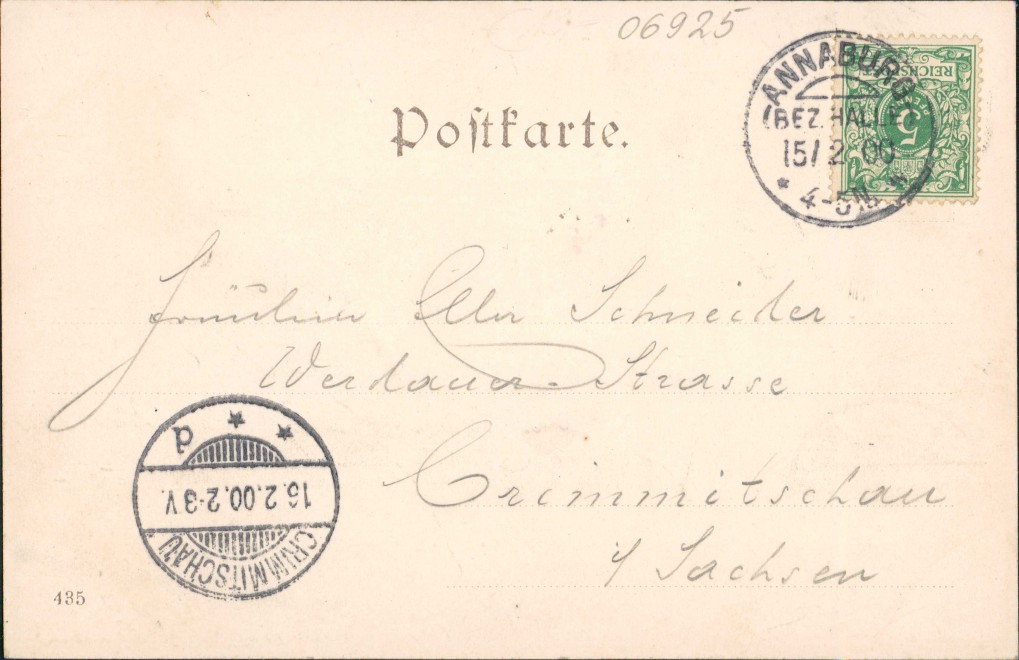 06925
Postkarte.
ANNABURG
(BEZ. HALLE)
15/2.00
* 4-5N. *
REICHSPOST
5
Fräulein Ella Schneider
Werdauer Strasse
Crimmitschau
i/ Sachsen
CRIMMITSCHAU
16.2.00.2-3V.
* * d
435